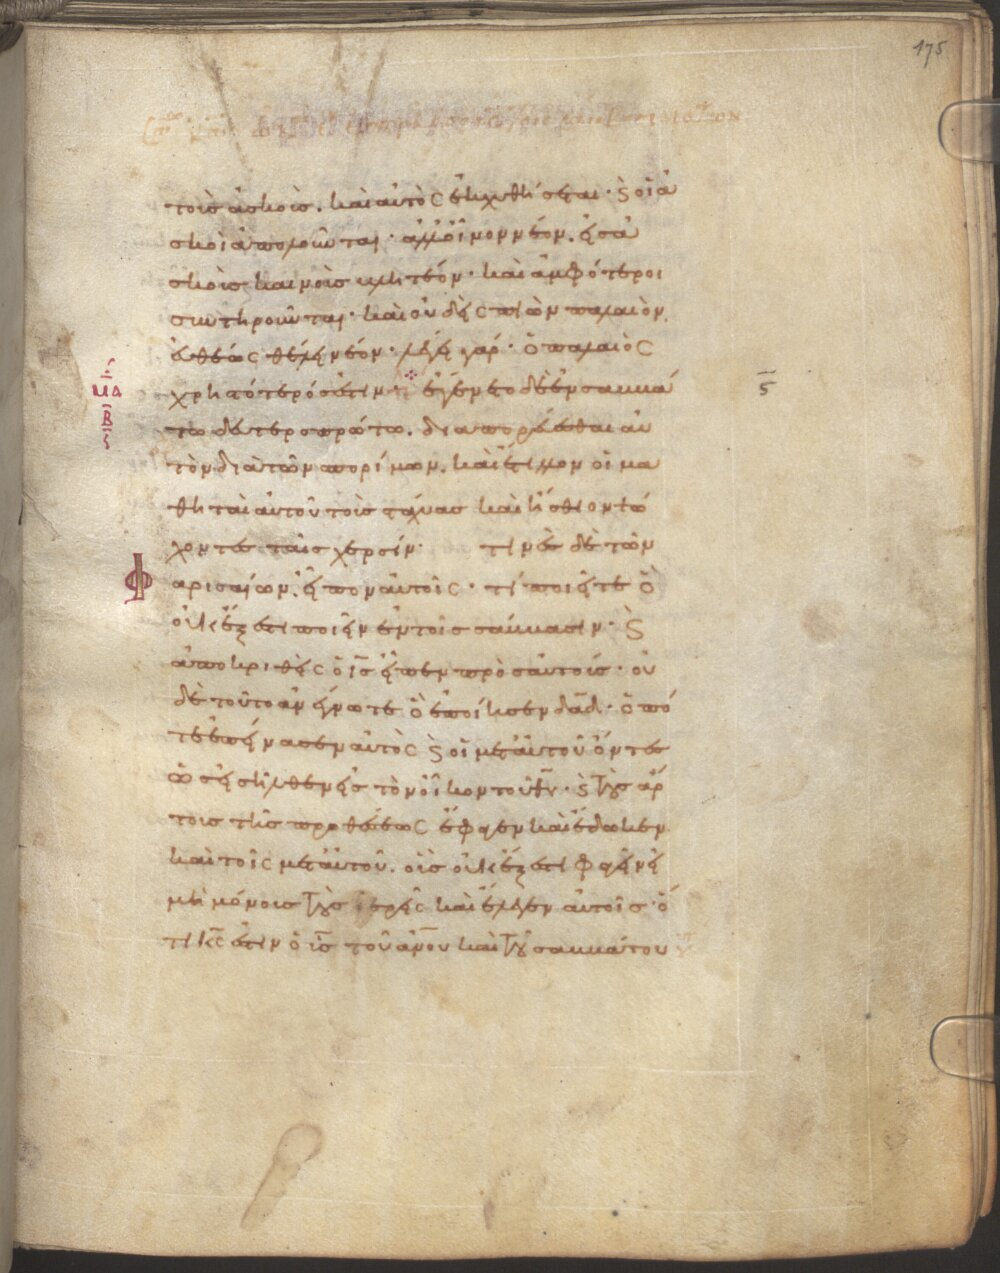 175
τοὺσ ἀσκοὺσ. καὶ αὐτὸς ἐκχυθήσεται· ϗ οἱ ἀ
σκοὶ ἀπολοῦνται· ἀλλ' οἶνον νέον. εἰσ ἀ
σκοὺσ καινοὺσ βλητέον· καὶ ἀμφότεροι
συντηροῦνται· καὶ οὐδεὶς πιὼν παλαιὸν
εὐθέως θέλει νέον· λέγει γάρ· ὁ παλαιὸς
χρηστότερόσ ἐστιν· ἐγένετο δὲ ἐν σαββά
τω δευτεροπρώτω. διαπορεύεσθαι αὐ
τὸν διὰ τῶν σπορίμων. καὶ ἔτιλλον οἱ μα
θηταὶ αὐτοῦ τοὺσ στάχυασ καὶ ἤσθιον ψώ
χοντεσ ταῖσ χερσίν· τινὲσ δὲ τῶν
Φαρισαίων. εἶπον αὐτοῖς· τί ποιεῖτε ὃ
οὐκ ἔξεστι ποιεῖν ἐν τοῖσ σάββασιν· ϗ
ἀποκριθεὶς ὁ ι̅σ̅ εἶπεν πρὸσ αὐτούσ· οὐ
δὲ τοῦτο ἀνέγνωτε ὃ ἐποίησεν δα̅δ̅· ὁπό
τε ἐπείνασεν αὐτὸς ϗ οἱ μετ αὐτοῦ ὄντεσ
ὡσ εἰσῆλθεν εἰσ τὸν οἶκον τοῦ θ̅υ̅· ϗ τοὺσ ἄρ
τουσ τῆσ προθέσεως ἔφαγεν καὶ ἔδωκεν
καὶ τοῖς μετ αὐτοῦ. οὓσ οὐκ ἔξεστι φαγεῖν εἰ
μὴ μόνουσ τοὺσ ἱερεῖς καὶ ἔλεγεν αὐτοῖσ· ὅ
τι κ̅ς̅ ἐστιν ὁ υ̅σ̅ τοῦ α̅ν̅ο̅υ̅ καὶ τοῦ σαββάτου